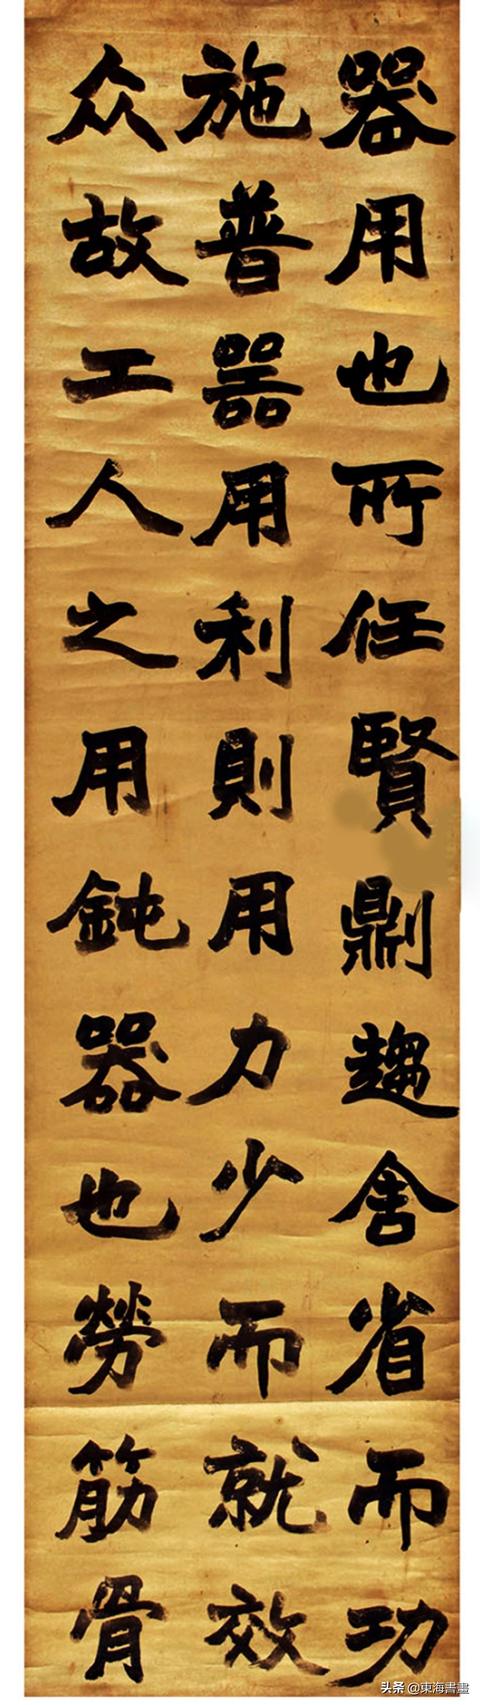 器用也所任賢鼎趨舍省而功
施普器用利則用力少而就效
众故工人之用鈍器也勞筋骨
头条 @東海書畫